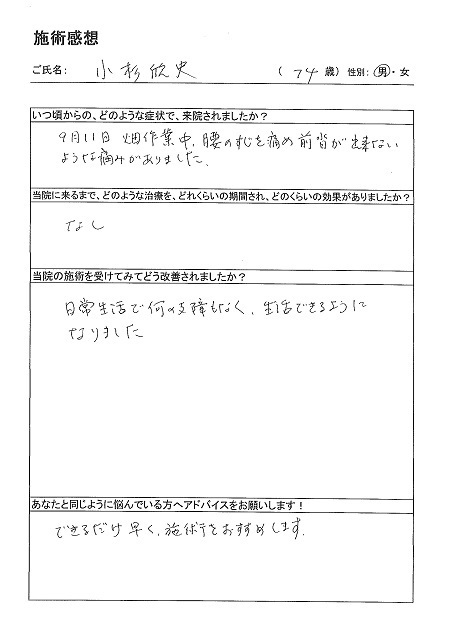 施術感想
ご氏名: 小杉欣史 (74歳) 性別: 男・女
いつ頃からの、どのような症状で、来院されましたか？
9月11日 畑作業中、腰のすじを痛め前沓が出来ない
ような痛みがありました。
当院に来るまで、どのような治療を、どれくらいの期間され、どのくらいの効果がありましたか？
なし
当院の施術を受けてみてどう改善されましたか？
日常生活で何の支障もなく、生活できるように
なりました
あなたと同じように悩んでいる方へアドバイスをお願いします！
できるだけ早く、施術をおすすめします。